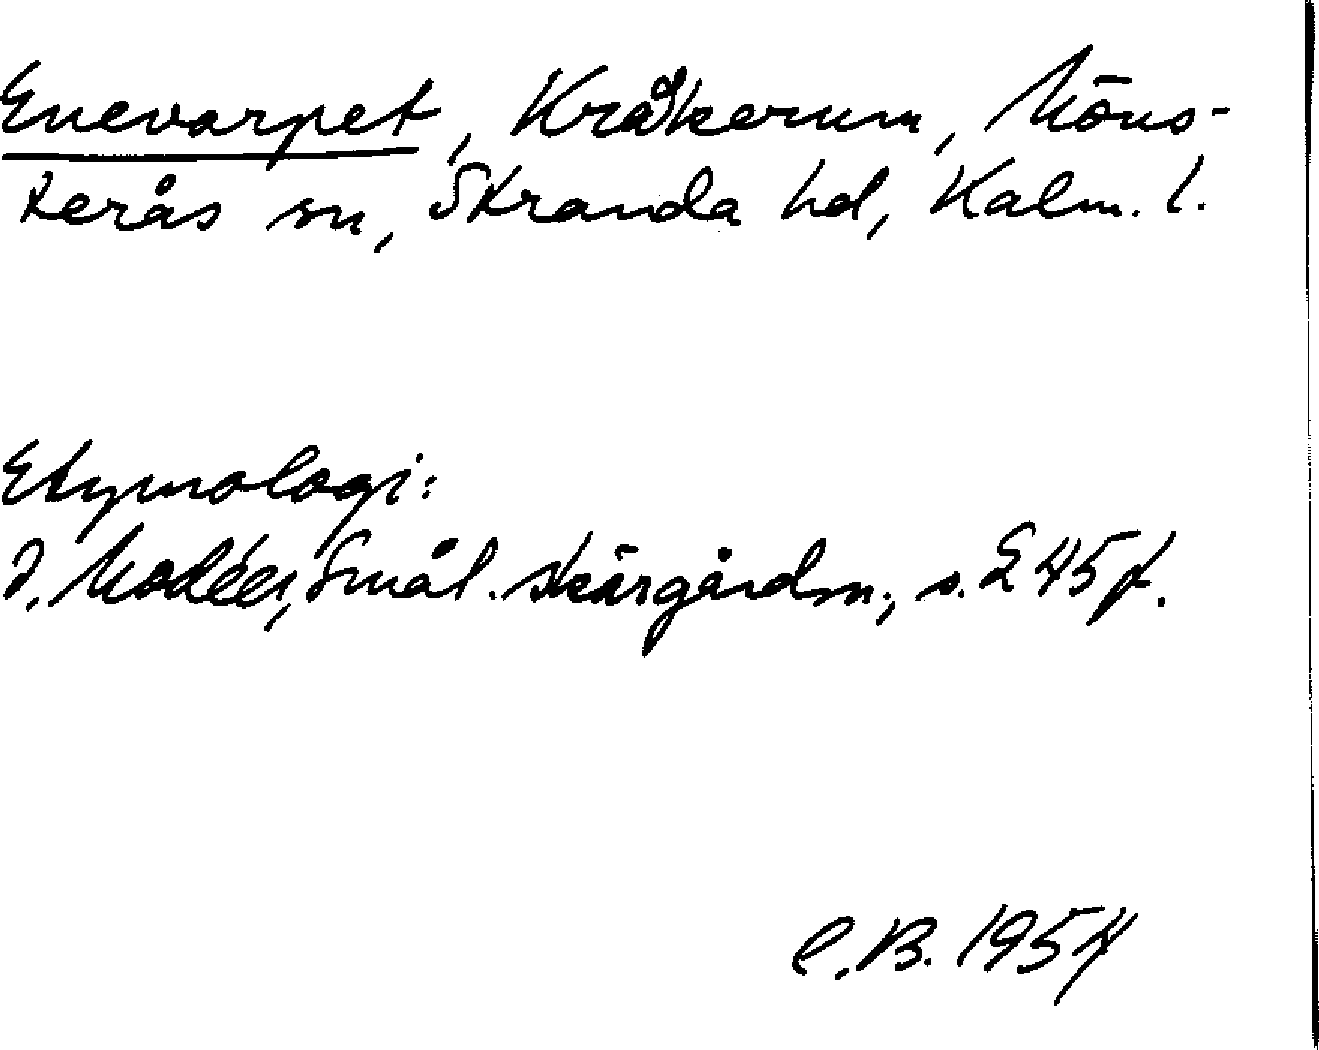 Enevarpet, Kråkerum, Möns-
terås sn, Stranda hd, Kalm. l.
Etymologi:
I. Modéer, Smål. skärgårdsn., s. 245 f.
C.B. 1954